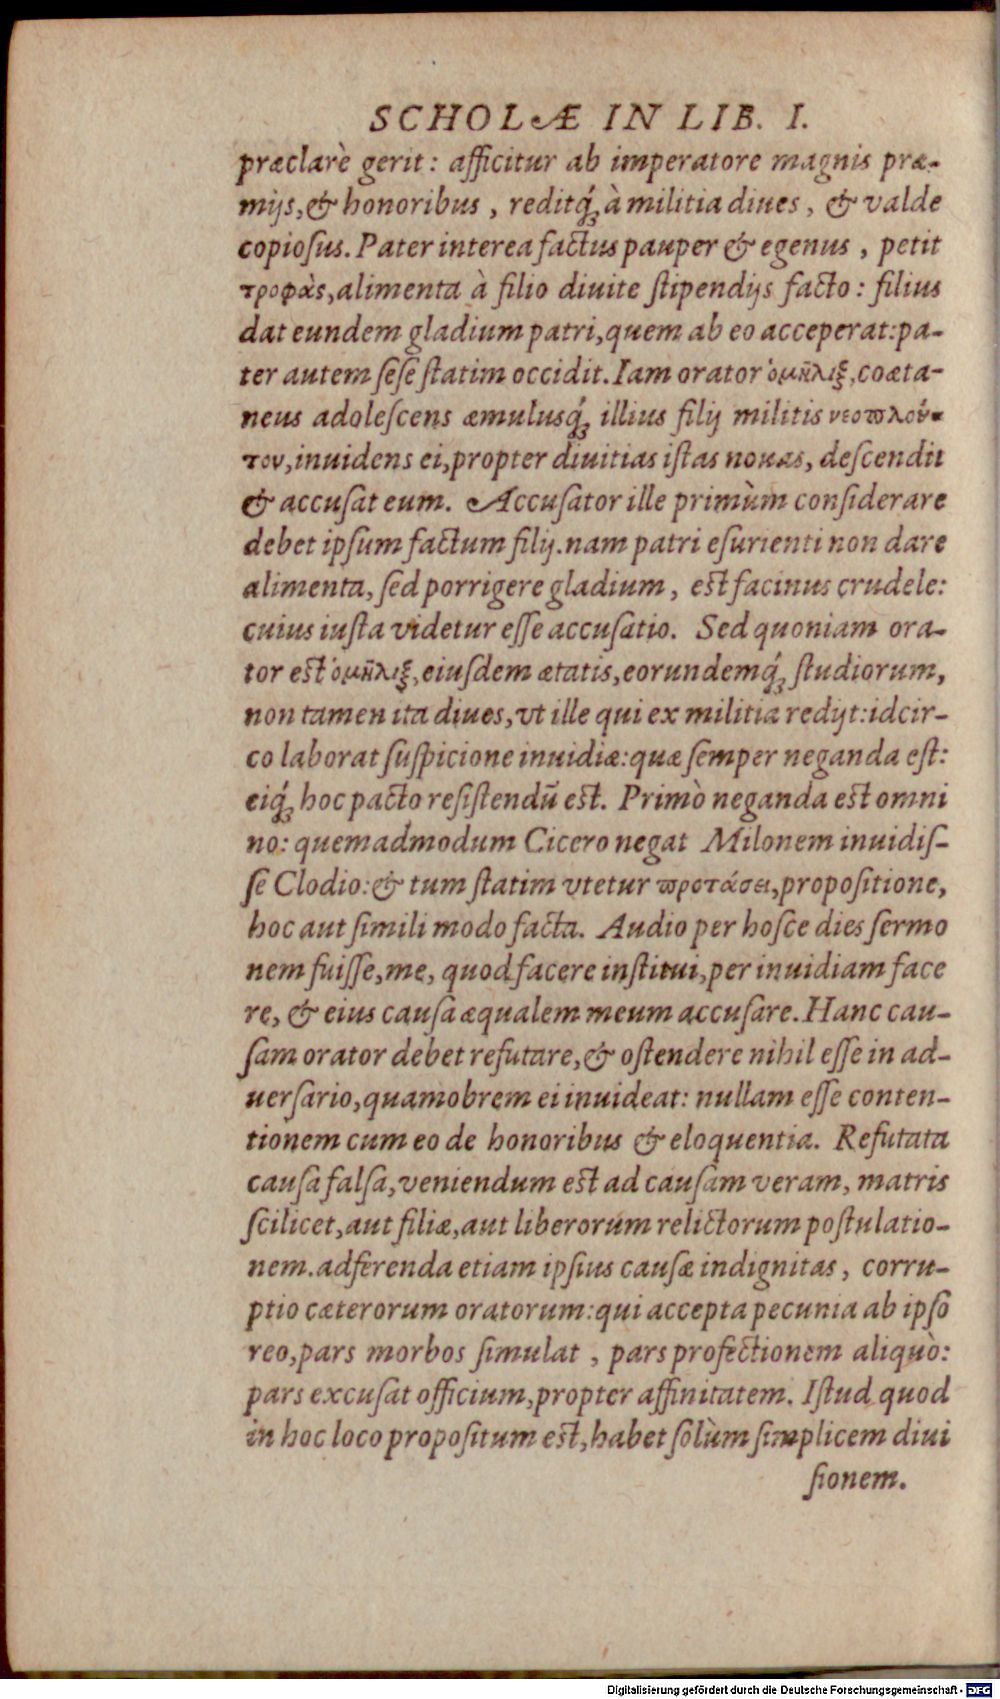 SCHOLÆ IN LIB. I.
præclarè gerit: afficitur ab imperatore magnis præ-
mijs, & honoribus, reditq́ꝫ à militia diues, & valde
copioſus. Pater interea factus pauper & egenus, petit
τροφὰς, alimenta à filio diuite ſtipendijs facto: filius
dat eundem gladium patri, quem ab eo acceperat: pa-
ter autem ſeſe ſtatim occidit. Iam orator ὁμῆλιξ, coæta-
neus adoleſcens æmulusq́ꝫ illius filij militis νεοπλού-
του, inuidens ei, propter diuitias iſtas nouas, deſcendit
& accuſat eum. Accuſator ille primùm conſiderare
debet ipſum factum filij. nam patri eſurienti non dare
alimenta, ſed porrigere gladium, eſt facinus crudele:
cuius iuſta videtur eſſe accuſatio. Sed quoniam ora-
tor eſt ὁμῆλιξ, eiuſdem ætatis, eorundemq́ꝫ ſtudiorum,
non tamen ita diues, vt ille qui ex militia redijt: idcir-
co laborat ſuſpicione inuidiæ: quæ ſemper neganda eſt:
eiq́ꝫ hoc pacto reſiſtendū eſt. Primò neganda eſt omni
no: quemadmodum Cicero negat Milonem inuidiſ-
ſe Clodio: & tum ſtatim vtetur προτάσει, propoſitione,
hoc aut ſimili modo facta. Audio per hoſce dies ſermo
nem fuiſſe, me, quod facere inſtitui, per inuidiam face
re, & eius cauſa æqualem meum accuſare. Hanc cau-
ſam orator debet refutare, & oſtendere nihil eſſe in ad-
uerſario, quamobrem ei inuideat: nullam eſſe conten-
tionem cum eo de honoribus & eloquentia. Refutata
cauſa falſa, veniendum eſt ad cauſam veram, matris
ſcilicet, aut filiæ, aut liberorum relictorum poſtulatio-
nem. adferenda etiam ipſius cauſæ indignitas, corru-
ptio cæterorum oratorum: qui accepta pecunia ab ipſo
reo, pars morbos ſimulat, pars profectionem aliquò:
pars excuſat officium, propter affinitatem. Iſtud quod
in hoc loco propoſitum eſt, habet ſolùm ſimplicem diui
ſionem.
Digitalisierung gefördert durch die Deutsche Forschungsgemeinschaft - DFG